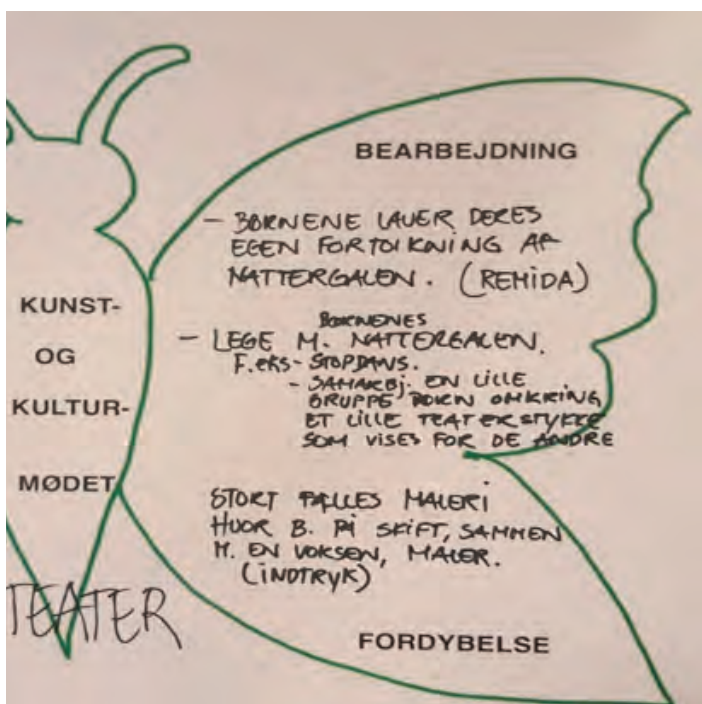 BEARBEJDNING
- BØRNENE LAVER DERES
EGEN FORTOLKNING AF
NATTERGALEN. (REMIDA)
BØRNENES
- LEGE M. NATTERGALEN.
F.eks - STOPDANS.
- SAMARBJ. EN LILLE
GRUPPE BØRN OMKRING
ET LILLE TEATERSTYKKE
SOM VISES FOR DE ANDRE
STORT FÆLLES MALERI
HVOR B. PÅ SKIFT, SAMMEN
M. EN VOKSEN, MALER.
(INDTRYK)
FORDYBELSE
KUNST-
OG
KULTUR-
MØDET
TEATER